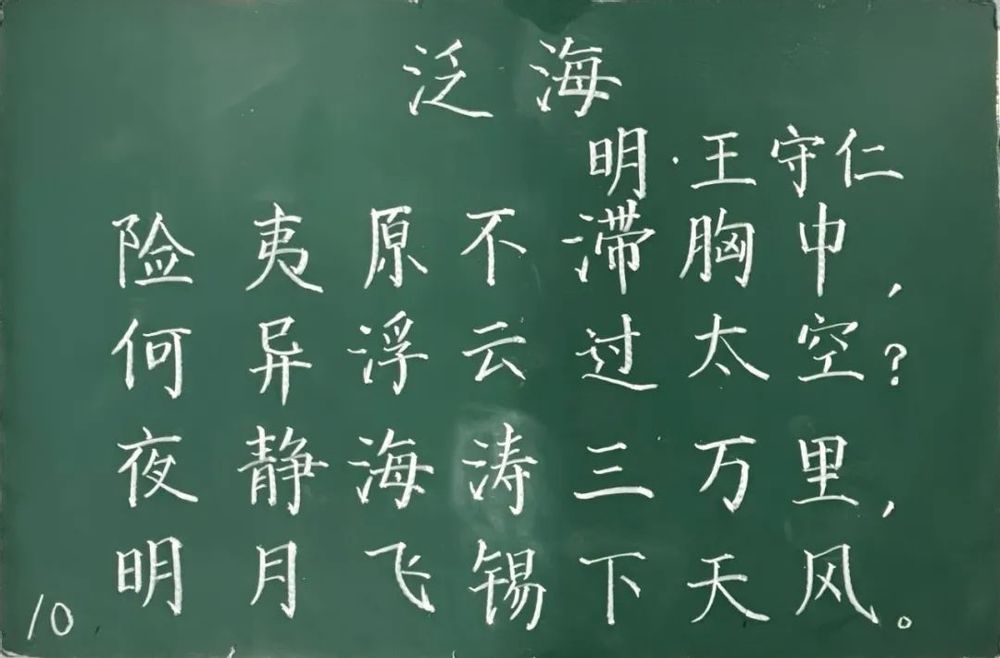 泛海
明·王守仁
险夷原不滞胸中，
何异浮云过太空？
夜静海涛三万里，
明月飞锡下天风。
10